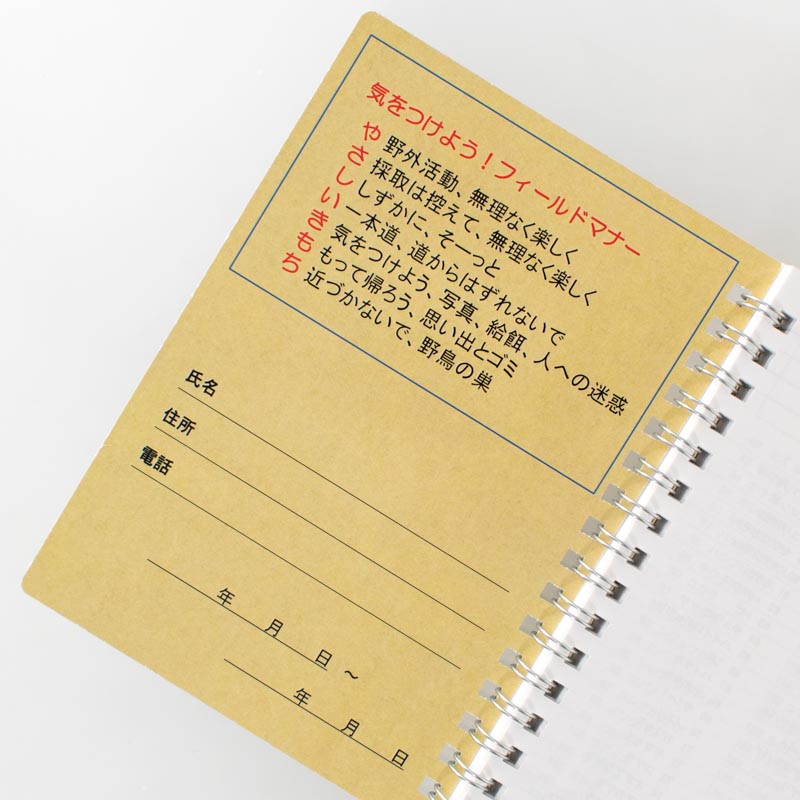 気をつけよう!フィールドマナー
や 野外活動、無理なく楽しく
さ 採取は控えて、無理なく楽しく
し しずかに、そーっと
い 一本道、道からはずれないで
き 気をつけよう、写真、給餌、人への迷惑
も もって帰ろう、思い出とゴミ
ち 近づかないで、野鳥の巣
氏名
住所
電話
年 月 日 ~
年 月 日